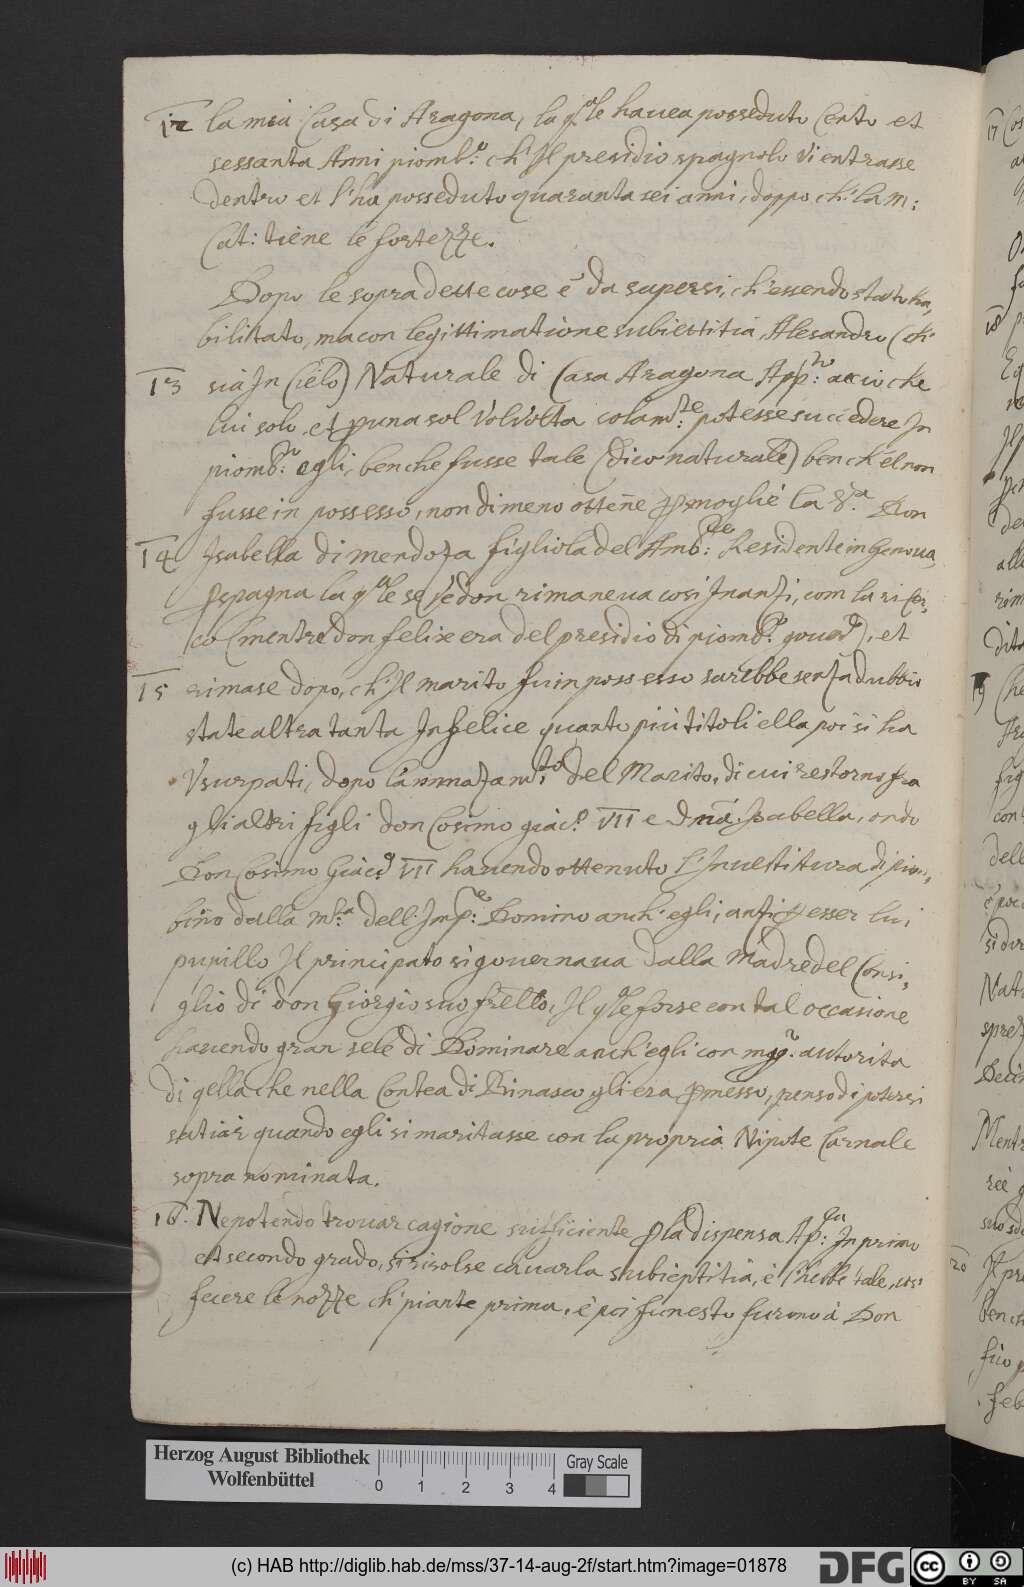 12 la mia Casa di Aragona, la q.le hauea posseduto Cento et
sessanta Anni piomb.o ch' Il presidio spagnolo vi entrasse
dentro et l'ha posseduto quaranta sei anni, doppo ch' la m:
Cat: tiene le fortezze.
Dopo le sopradette cose è da sapersi, ch' essendo stato ha,
bilitato, ma con legittimatione subiettitia Alesandro (ch'
13 sia In Cielo) Naturale di Casa Aragona App:to acciò che
lui solo, et p una sol volvolta colam:te potesse succedere In
piomb:o egli, benche fusse tale (dico naturale) ben ch' el non
fusse in possesso, non dimeno ottene p moglie la S.ra Don
14 Isabella di mendoza figliola del Amb:re Residente in Genoua,
p spagna la q.le se sedon rimaneua così Inanzi, com la ri cer,
co (mentre don felixe era del presidio di piomb.o gouer.), et
15 rimase dopo, ch' Il marito fu in possesso sarebbe senza dubbio
state altra tanta Infelice quanto più titoli ella poi si ha
Vsurpati, dopo l'ammazam:to del Marito, di cui restorno fra
gli altri figli don Cosimo giac.o VII e Dnã. Isabella, onde
Don Cosimo Giac.o VII hauendo ottenuto l'Inuestitura di piom,
bino dalla m.tà dell' Imp:re Domino anch' egli, anzi p esser lui
pupillo Il principato si gouernaua dalla Madre del Consi,
glio di don Giorgio suo frello, Il q.le forse con tal occasione
hauendo gran sele di Dominare anch' egli con magg.r autorita
di qella che nella Contea di Binasco gli era pmesso, penso di potersi
satiar quando egli si maritasse con la propria Nipote Carnale
sopra nominata.
16. Nepotendo trouar cagione sufficiente p la dispensa Ap:ca In primo
et secondo grado, si risolse cauarla subieptitia, è l'hebbe tale, cosi
fecere le nozze ch' piante prima, è poi funesto furono à Don
Herzog August Bibliothek
Wolfenbüttel
0 1 2 3 4
Gray Scale
(c) HAB http://diglib.hab.de/mss/37-14-aug-2f/start.htm?image=01878
DFG
cc BY SA